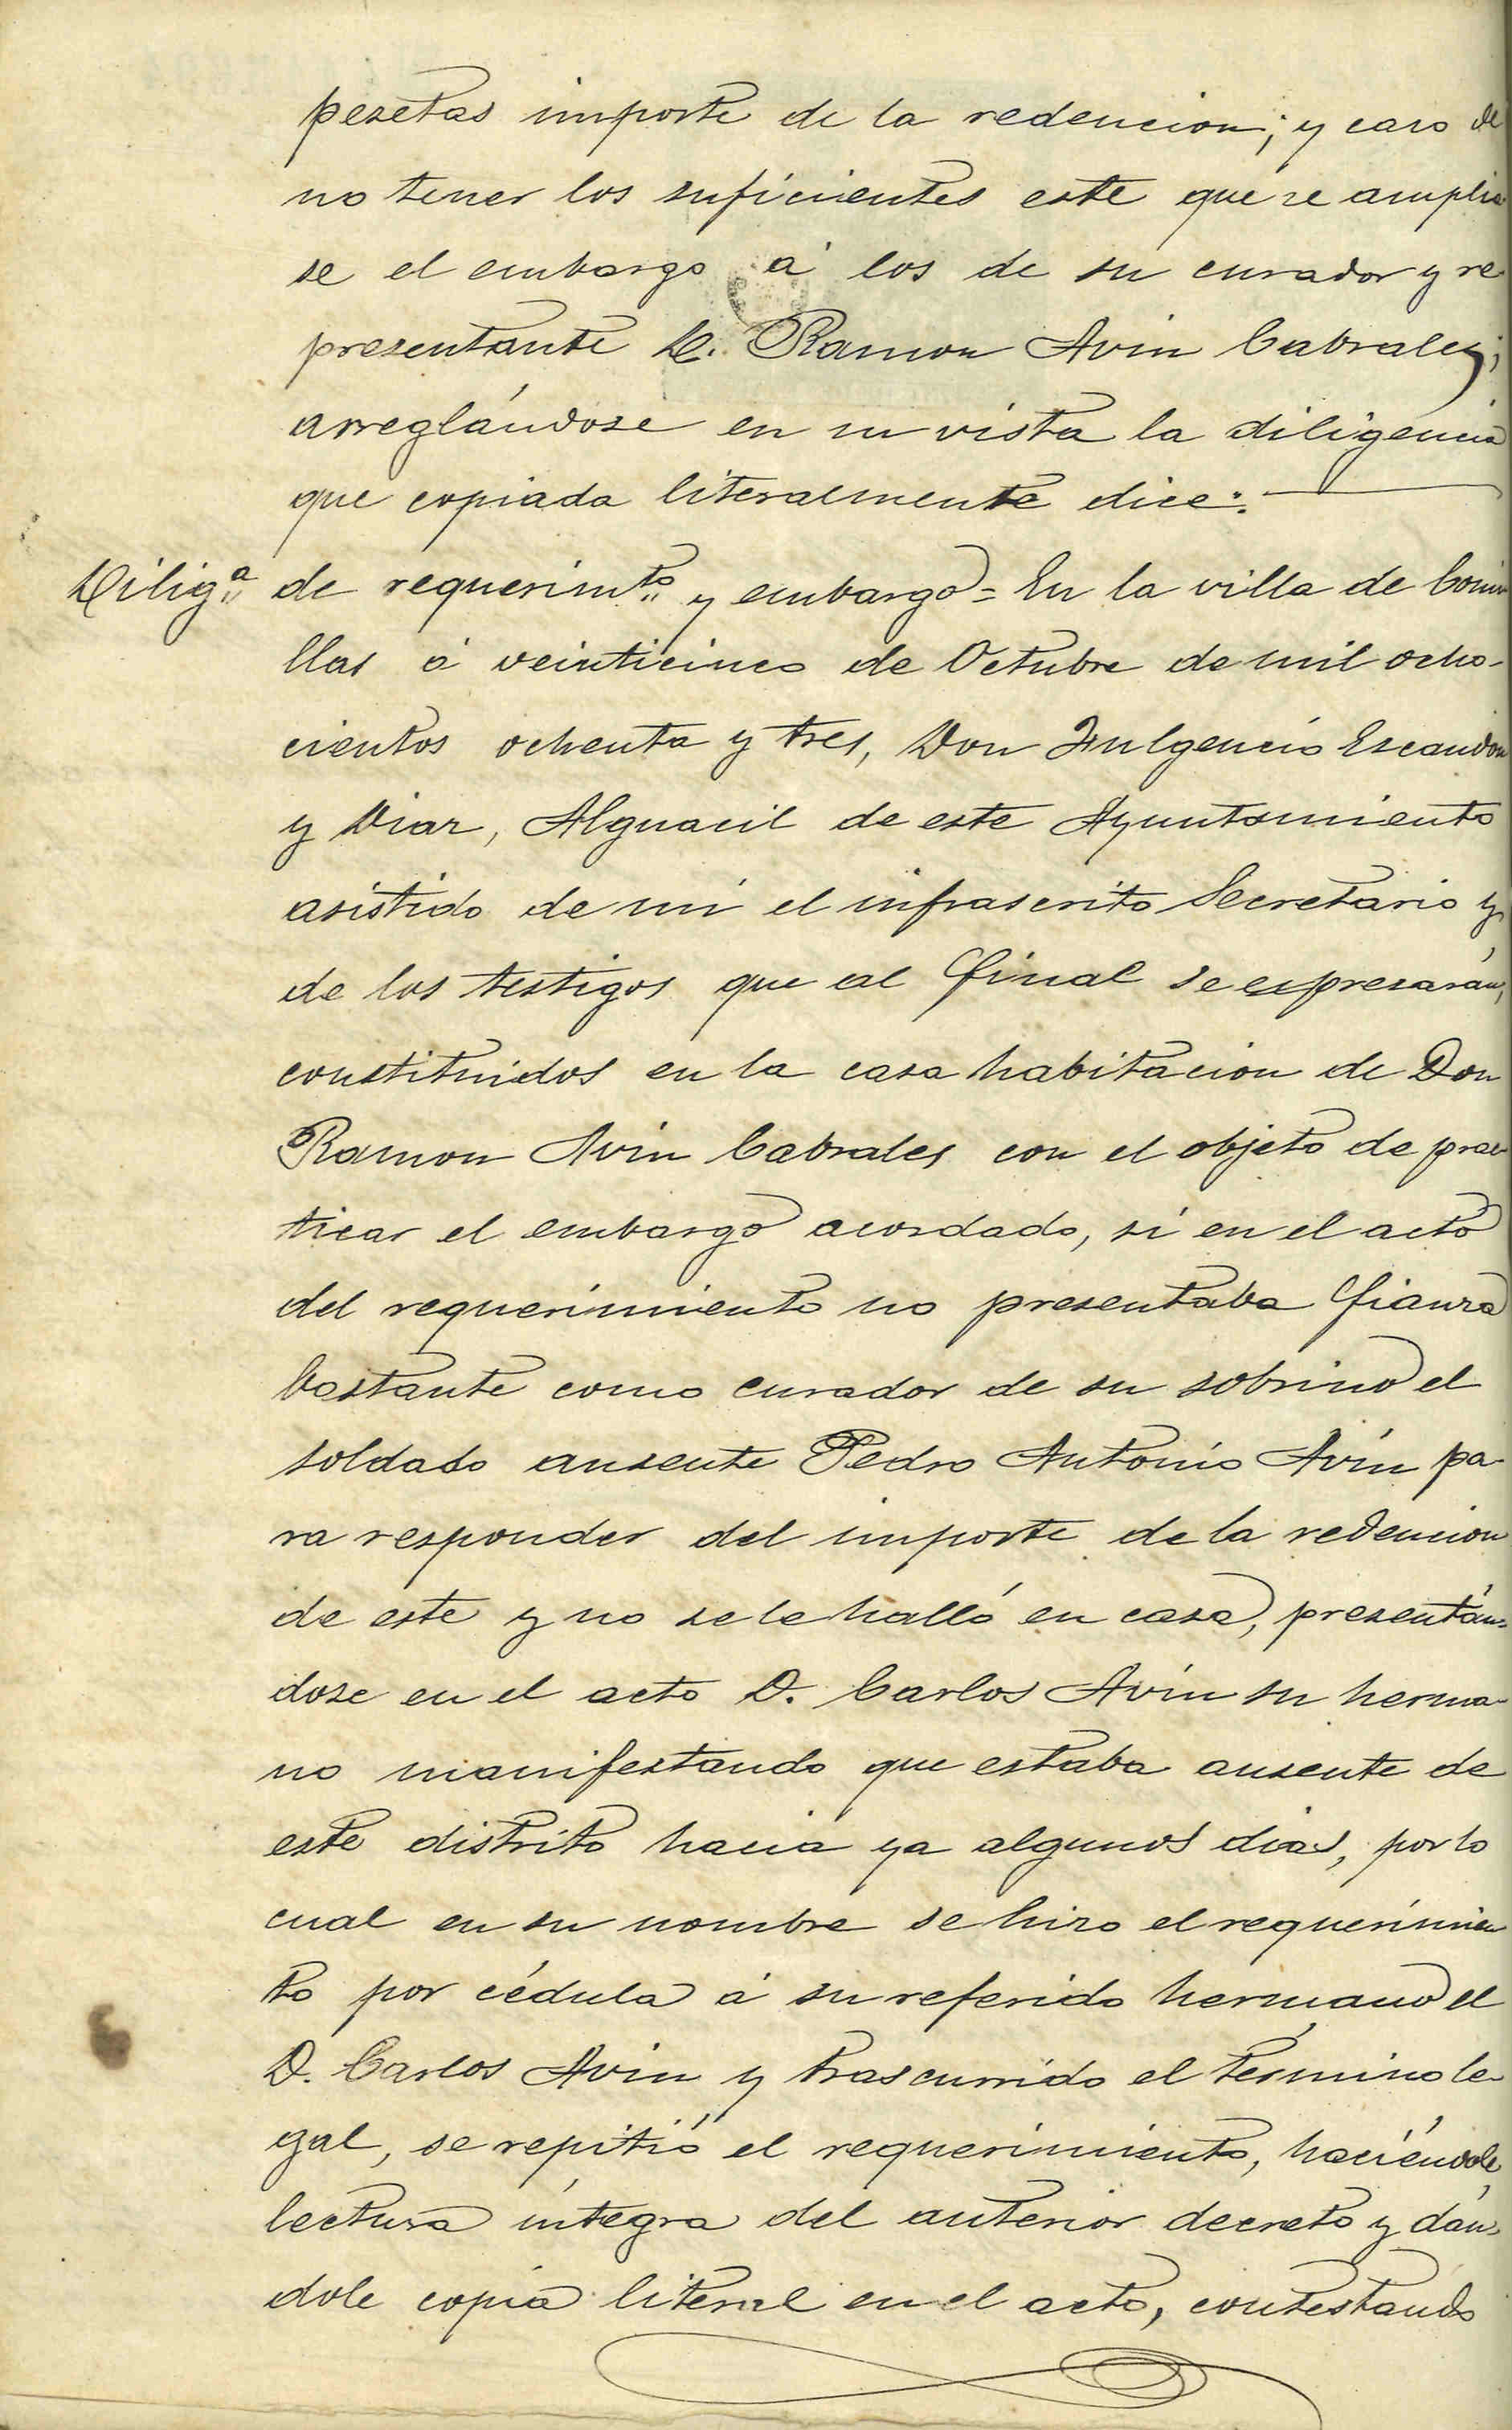 pesetas importe de la redencion; y caso de
no tener los suficientes este que se amplia
se el embargo á los de su curador y re
presentante D. Ramon Avin Cabrales;
arreglándose en su vista la diligencia
que copiada literalmente dice:
Dilig.ª de requerim.to y embargo = En la villa de Comi
llas á veinticinco de Octubre de mil ocho-
cientos ochenta y tres, Don Fulgencio Escandon
y Diaz, Alguacil de este Ayuntamiento
asistido de mi el infrascrito Secretario y
de los testigos que al final se espresarán,
constituidos en la casa habitacion de Don
Ramon Avin Cabrales con el objeto de prac
ticar el embargo acordado, si en el acto
del requerimiento no presentaba fianza
bastante como curador de su sobrino el
soldado ausente Pedro Antonio Avin pa-
ra responder del importe de la redencion
de este y no se le halló en casa, presentán-
dose en el acto D. Carlos Avin su herma-
no manifestando que estaba ausente de
este distrito hacia ya algunos dias, por lo
cual en su nombre se hizo el requerimien
to por cédula á su referido hermano el
D. Carlos Avin y trascurrido el término le-
gal, se repitió el requerimiento, haciéndole
lectura íntegra del anterior decreto y dán-
dole copia literal en el acto, contestando